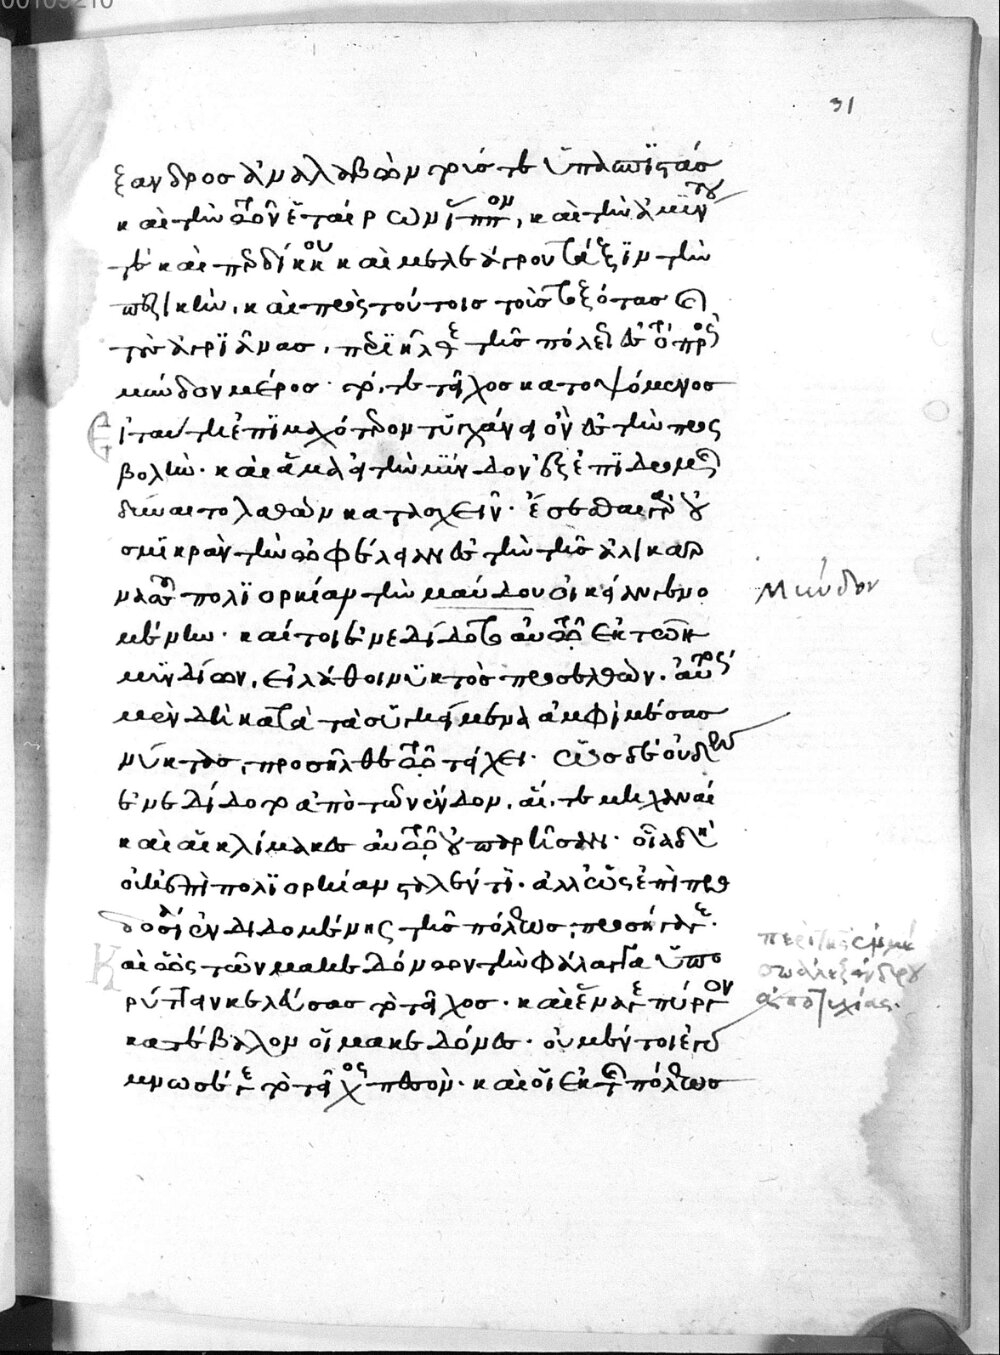 31
ξανδρος ἀναλαβὼν τούς τε ὑπασπιστὰς
καὶ τὴν τῶν ἑταίρων ἵππον, καὶ τὴν ἀμύντου
τε καὶ περδίκκου καὶ μελεάγρου τάξιν τὴν
πεζικὴν, καὶ πρὸς τούτοις τοὺς τοξότας καὶ
τοὺς ἀγριᾶνας, περιῆλθε τῆς πόλεως ἐς τὸ πρὸς
μύνδον μέρος· τό, τε τεῖχος κατοψόμενος
εἰ ταύτη ἐπιμαχότερον τυγχάνει ὂν ἐς τὴν προς
βολήν· καὶ ἅμα εἰ τὴν μύνδον ἐξ ἐπιδρομῆς
δύναιτο λαθὼν κατασχεῖν· ἔσεσθαι γὰρ οὐ
σμικρὰν τὴν ὠφέλειαν ἐς τὴν τῆς ἁλικαρ
νασοῦ πολιορκίαν τὴν μύνδον οἰκείαν γενο
μένην· καί τοι ἐνεδίδοτο αὐτῷ ἐκ τῶν
μυνδίων, εἰ λάθοι νυκτὸς προσελθών. αὐτὸς
μὲν δὴ κατὰ τὰ συγκείμενα ἀμφὶ μέσας
νύκτας, προσῆλθε τῷ τείχει· ὡς δὲ οὐδὲν
ἐνεδίδοτο ἀπὸ τῶν ἔνδον, αἵ, τε μηχαναὶ
καὶ αἱ κλίμακες αὐτῷ οὐ παρῆσαν· οἷα δὴ
οὐκ ἐπὶ πολιορκίαν σταλέντι· ἀλλ' ὡς ἐπὶ προ
δοσία ἐνδιδομένης τῆς πόλεως, προσήγαγε·
Καὶ ὣς τῶν μακεδόνων τὴν φάλαγγα ὑπο
ρύττειν κελεύσας τὸ τεῖχος· καὶ ἕνα γε πύργον
κατέβαλον οἱ μακεδόνες· οὐ μέντοι ἐγύ
μνωσέ γε τὸ τεῖχος πεσὸν· καὶ οἱ ἐκ τῆς πόλεως
Μύνδον
περὶ τῆς
ἀλεξάνδρου
ἀποτυχίας.